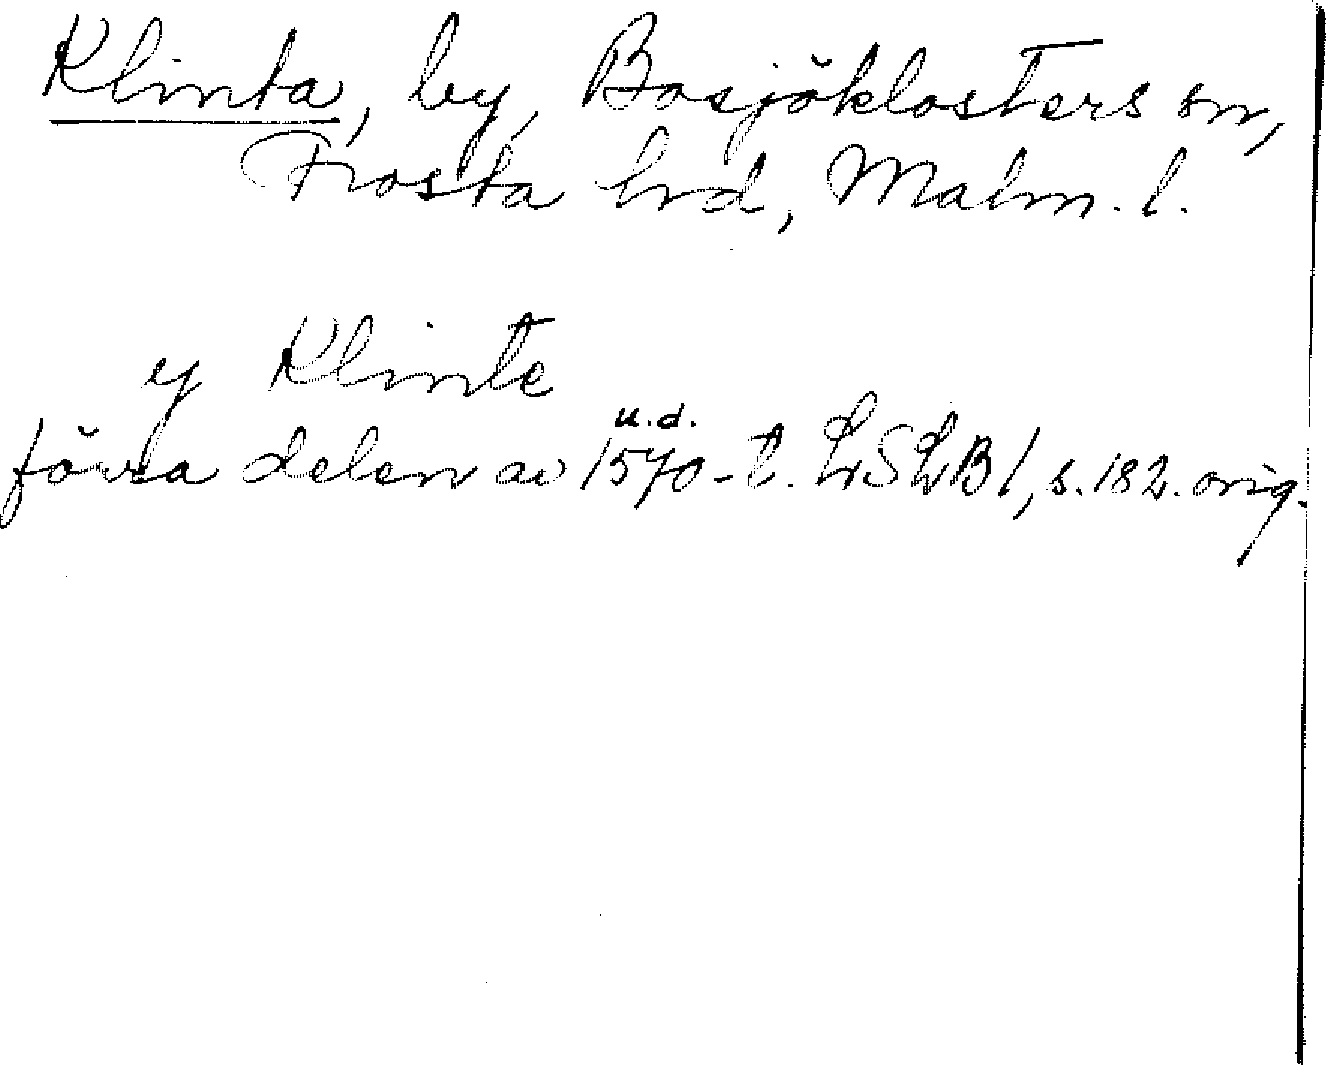 Klinta, by, Bosjöklosters sn,
Frosta hrd, Malm. l.
y Klinte
u.d.
förra delen av 1570-t. LSLB 1, s. 182. orig.